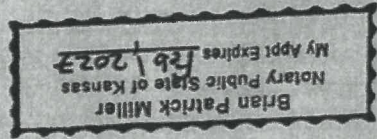 Brian Patrick Miller
Notary Public State of Kansas
My Appt Expires Feb 1, 2027